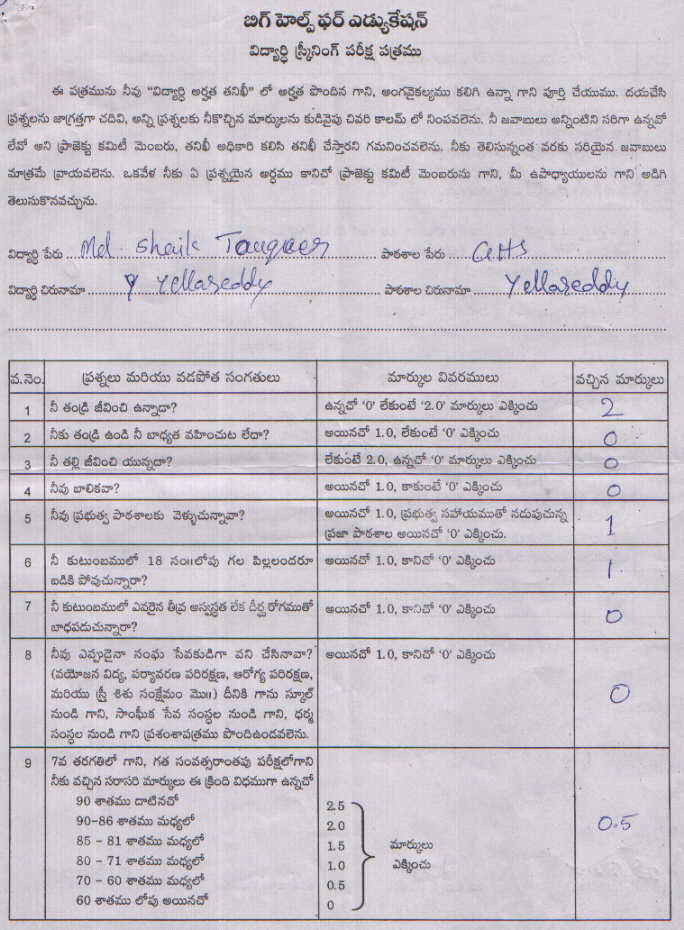 బిగ్ హెల్ప్ ఫర్ ఎడ్యుకేషన్
విద్యార్థి స్క్రీనింగ్ పరీక్ష పత్రము
ఈ పత్రమును నీవు "విద్యార్థి అర్హత తనిఖీ" లో అర్హత పొందిన గాని, అంగవైకల్యము కలిగి ఉన్నా గాని పూర్తి చేయుము. దయచేసి
ప్రశ్నలను జాగ్రత్తగా చదివి, అన్ని ప్రశ్నలకు నీకొచ్చిన మార్కులను కుడివైపు చివరి కాలమ్ లో నింపవలెను. నీ జవాబులు అన్నింటిని సరిగా ఉన్నవో
లేవో అని ప్రాజెక్టు కమిటీ మెంబరు, తనిఖీ అధికారి కలిసి తనిఖీ చేస్తారని గమనించవలెను. నీకు తెలిసున్నంత వరకు సరియైన జవాబులు
మాత్రమే వ్రాయవలెను. ఒకవేళ నీకు ఏ ప్రశ్నయైన అర్థము కానిచో ప్రాజెక్టు కమిటీ మెంబరును గాని, మీ ఉపాధ్యాయులను గాని అడిగి
తెలుసుకొనవచ్చును.
విద్యార్థి పేరు Md. Shaik Tauqeer పాఠశాల పేరు GHS
విద్యార్థి చిరునామా Yellareddy పాఠశాల చిరునామా Yellareddy
వ.నెం. ప్రశ్నలు మరియు వడపోత సంగతులు మార్కుల వివరములు వచ్చిన మార్కులు
1 నీ తండ్రి జీవించి ఉన్నాడా? ఉన్నచో '0' లేకుంటే '2.0' మార్కులు ఎక్కించు 2
2 నీకు తండ్రి ఉండి నీ బాధ్యత వహించుట లేదా? అయినచో 1.0, లేకుంటే '0' ఎక్కించు 0
3 నీ తల్లి జీవించి యున్నదా? లేకుంటే 2.0, ఉన్నచో '0' మార్కులు ఎక్కించు 0
4 నీవు బాలికవా? అయినచో 1.0, కాకుంటే '0' ఎక్కించు 0
5 నీవు ప్రభుత్వ పాఠశాలకు వెళ్ళుచున్నావా? అయినచో 1.0, ప్రభుత్వ సహాయముతో నడుపుచున్న 1
ప్రజా పాఠశాల అయినచో '0' ఎక్కించు.
6 నీ కుటుంబములో 18 సం॥లోపు గల పిల్లలందరూ అయినచో 1.0, కానిచో '0' ఎక్కించు 1
బడికి పోవుచున్నారా?
7 నీ కుటుంబములో ఎవరైన తీవ్ర అస్వస్థత లేక దీర్ఘ రోగముతో అయినచో 1.0, కానిచో '0' ఎక్కించు 0
బాధపడుచున్నారా?
8 నీవు ఎప్పుడైనా సంఘ సేవకుడిగా పని చేసినావా? అయినచో 1.0, కానిచో '0' ఎక్కించు 0
(వయోజన విద్య, పర్యావరణ పరిరక్షణ, ఆరోగ్య పరిరక్షణ,
మరియు స్త్రీ శిశు సంక్షేమం మొ॥) దీనికి గాను స్కూల్
నుండి గాని, సాంఘీక సేవ సంస్థల నుండి గాని, ధర్మ
సంస్థల నుండి గాని ప్రశంశాపత్రము పొందిఉండవలెను.
9 7వ తరగతిలో గాని, గత సంవత్సరాంతపు పరీక్షలోగాని
నీకు వచ్చిన సరాసరి మార్కులు ఈ క్రింది విధముగా ఉన్నచో
90 శాతము దాటినచో 2.5
90-86 శాతము మధ్యలో 2.0 0.5
85 - 81 శాతము మధ్యలో 1.5 మార్కులు
80 - 71 శాతము మధ్యలో 1.0 ఎక్కించు
70 - 60 శాతము మధ్యలో 0.5
60 శాతము లోపు అయినచో 0